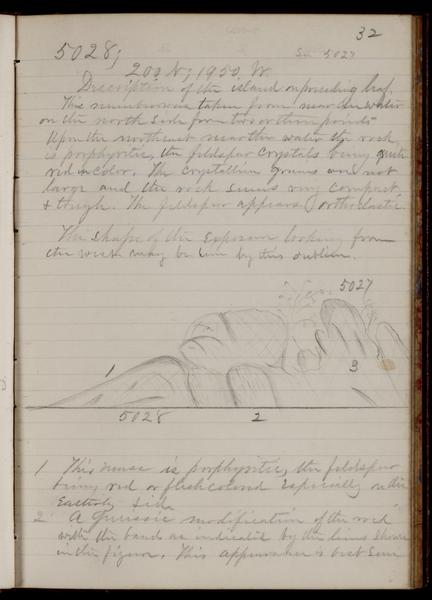 32
5028; See 5027
200 N, 1950 W.
Description of the island on preceding leaf.
This was taken from near the water
on the north side from two or three points
Upon the northeast near the water the rock
is porphyritic, the feldspar crystals being quite
red in color. The crystalline grains are not
large and the rock seems very compact
& tough. The feldspar appears orthoclastic.
The shape of the exposure looking from
the west may be seen by this outline.
5027
1
3
5028 2
1 This mass is porphyritic, the feldspar
being red or flesh colored especially on the
Easterly side.
2 A gneissic modification of the rock
with the bands as indicated by the lines shown
in the figure. This appearance is best seen